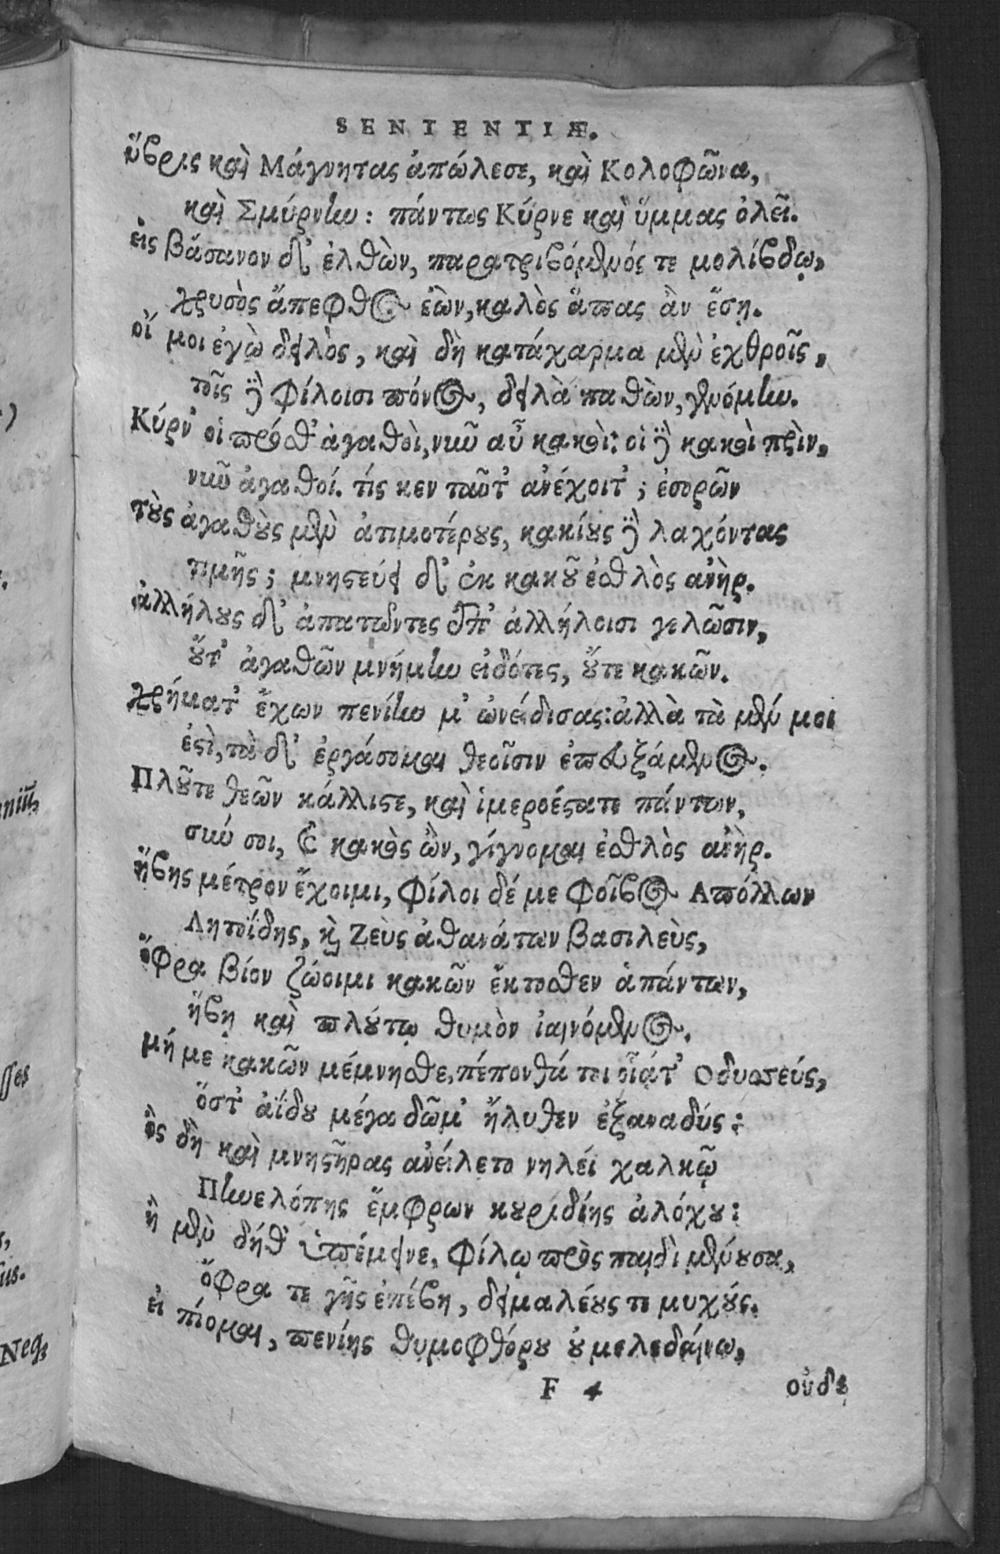 SENTENTIÆ.
ὕβρις καὶ Μάγνητας ἀπώλεσε, καὶ Κολοφῶνα,
καὶ Σμύρνην: πάντως Κύρνε καὶ ὔμμας ὀλεῖ.
εἰς βάσανον δ' ἐλθὼν, παρατριβόμενός τε μολίβδῳ,
χρυσὸς ἄπεφθος ἐὼν, καλὸς ἅπας ἂν ἔσῃ.
οἴ μοι ἐγὼ δειλὸς, καὶ δὴ κατάχαρμα μὲν ἐχθροῖς,
τοῖς δὲ φίλοισι πόνος, δειλὰ παθὼν, γενόμην.
Κύρν' οἱ πρόσθ' ἀγαθοὶ, νῦν αὖ κακοὶ: οἱ δὲ κακοὶ πρὶν,
νῦν ἀγαθοί. τίς κεν ταῦτ' ἀνέχοιτ'; ἐσορῶν
τοὺς ἀγαθοὺς μὲν ἀτιμοτέρους, κακίους δὲ λαχόντας
τιμῆς; μνηστεύει δ' ἐκ κακοῦ ἐσθλὸς ἀνὴρ.
ἀλλήλους δ' ἀπατῶντες ἐπ' ἀλλήλοισι γελῶσιν,
οὔτ' ἀγαθῶν μνήμην εἰδότες, οὔτε κακῶν.
χρήματ' ἔχων πενίην μ' ὠνείδισας: ἀλλὰ τὰ μέν μοι
ἐστὶ, τὰ δ' ἐργάσομαι θεοῖσιν ἐπευξάμενος.
Πλοῦτε θεῶν κάλλιστε, καὶ ἱμεροέστατε πάντων,
σὺν σοι, καὶ κακὸς ὢν, γίγνομαι ἐσθλὸς ἀνὴρ.
ἥβης μέτρον ἔχοιμι, φίλοι δέ με Φοῖβος Απόλλων
Λητοΐδης, καὶ Ζεὺς ἀθανάτων βασιλεὺς,
ὄφρα βίον ζώοιμι κακῶν ἔκτοσθεν ἁπάντων,
ἥβῃ καὶ πλούτῳ θυμὸν ἰαινόμενος.
μή με κακῶν μέμνησθε, πέπονθά τοι οἷάτ' Οδυσσεύς,
ὅστ' ἀΐδου μέγα δῶμ' ἤλυθεν ἐξαναδύς:
ὃς δὴ καὶ μνηστῆρας ἀνείλετο νηλέι χαλκῷ
Πηνελόπης ἔμφρων κουριδίης ἀλόχου:
ἣ μὲν δήθ' ὑπέμεινε, φίλῳ πρὸς παιδὶ μένουσα,
ὄφρα τε γῆς ἐπέβη, δειμαλέους τε μυχούς.
εἰ πίομαι, πενίης θυμοφθόρου οὐ μελεδαίνω,
F 4
οὐδὲ